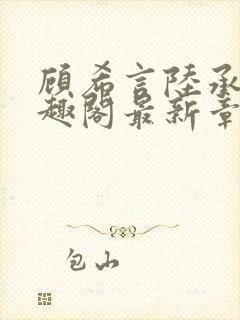 顾希言陸承
趣閣最新章
包山